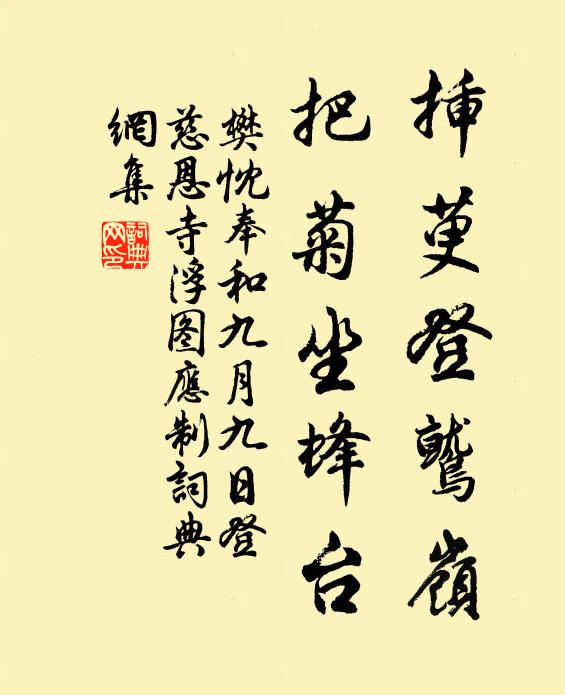 插萸登鷲嶺
把菊坐蜂台
樊忱奉和九月九日登
慈恩寺浮图應制詞典
網集
詞典
网印